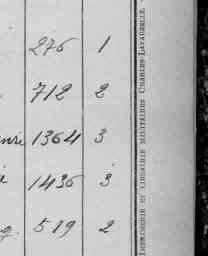 276 1
712 2
1364 3
1436 3
519 2
IMPRIMERIE ET LIBRAIRIE MILITAIRES CHARLES-LAVAUZELLE